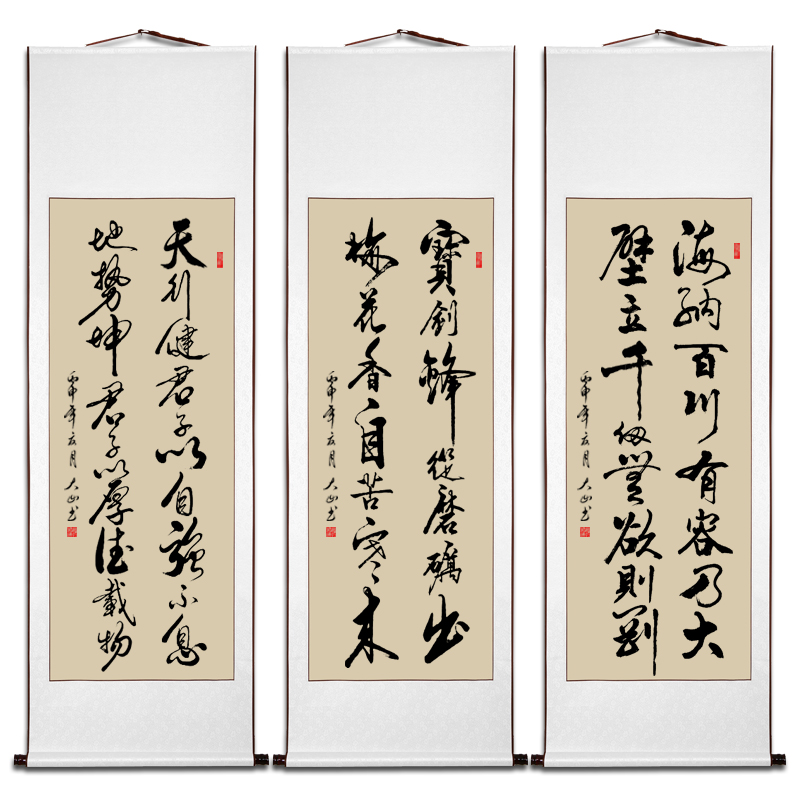 天行健君子以自強不息
地勢坤君子以厚德載物
丙申年月大山书
寶劍鋒從磨礪出
梅花香自苦寒来
丙申年月大山书
海納百川有容乃大
壁立千仞無欲則剛
丙申年月大山书